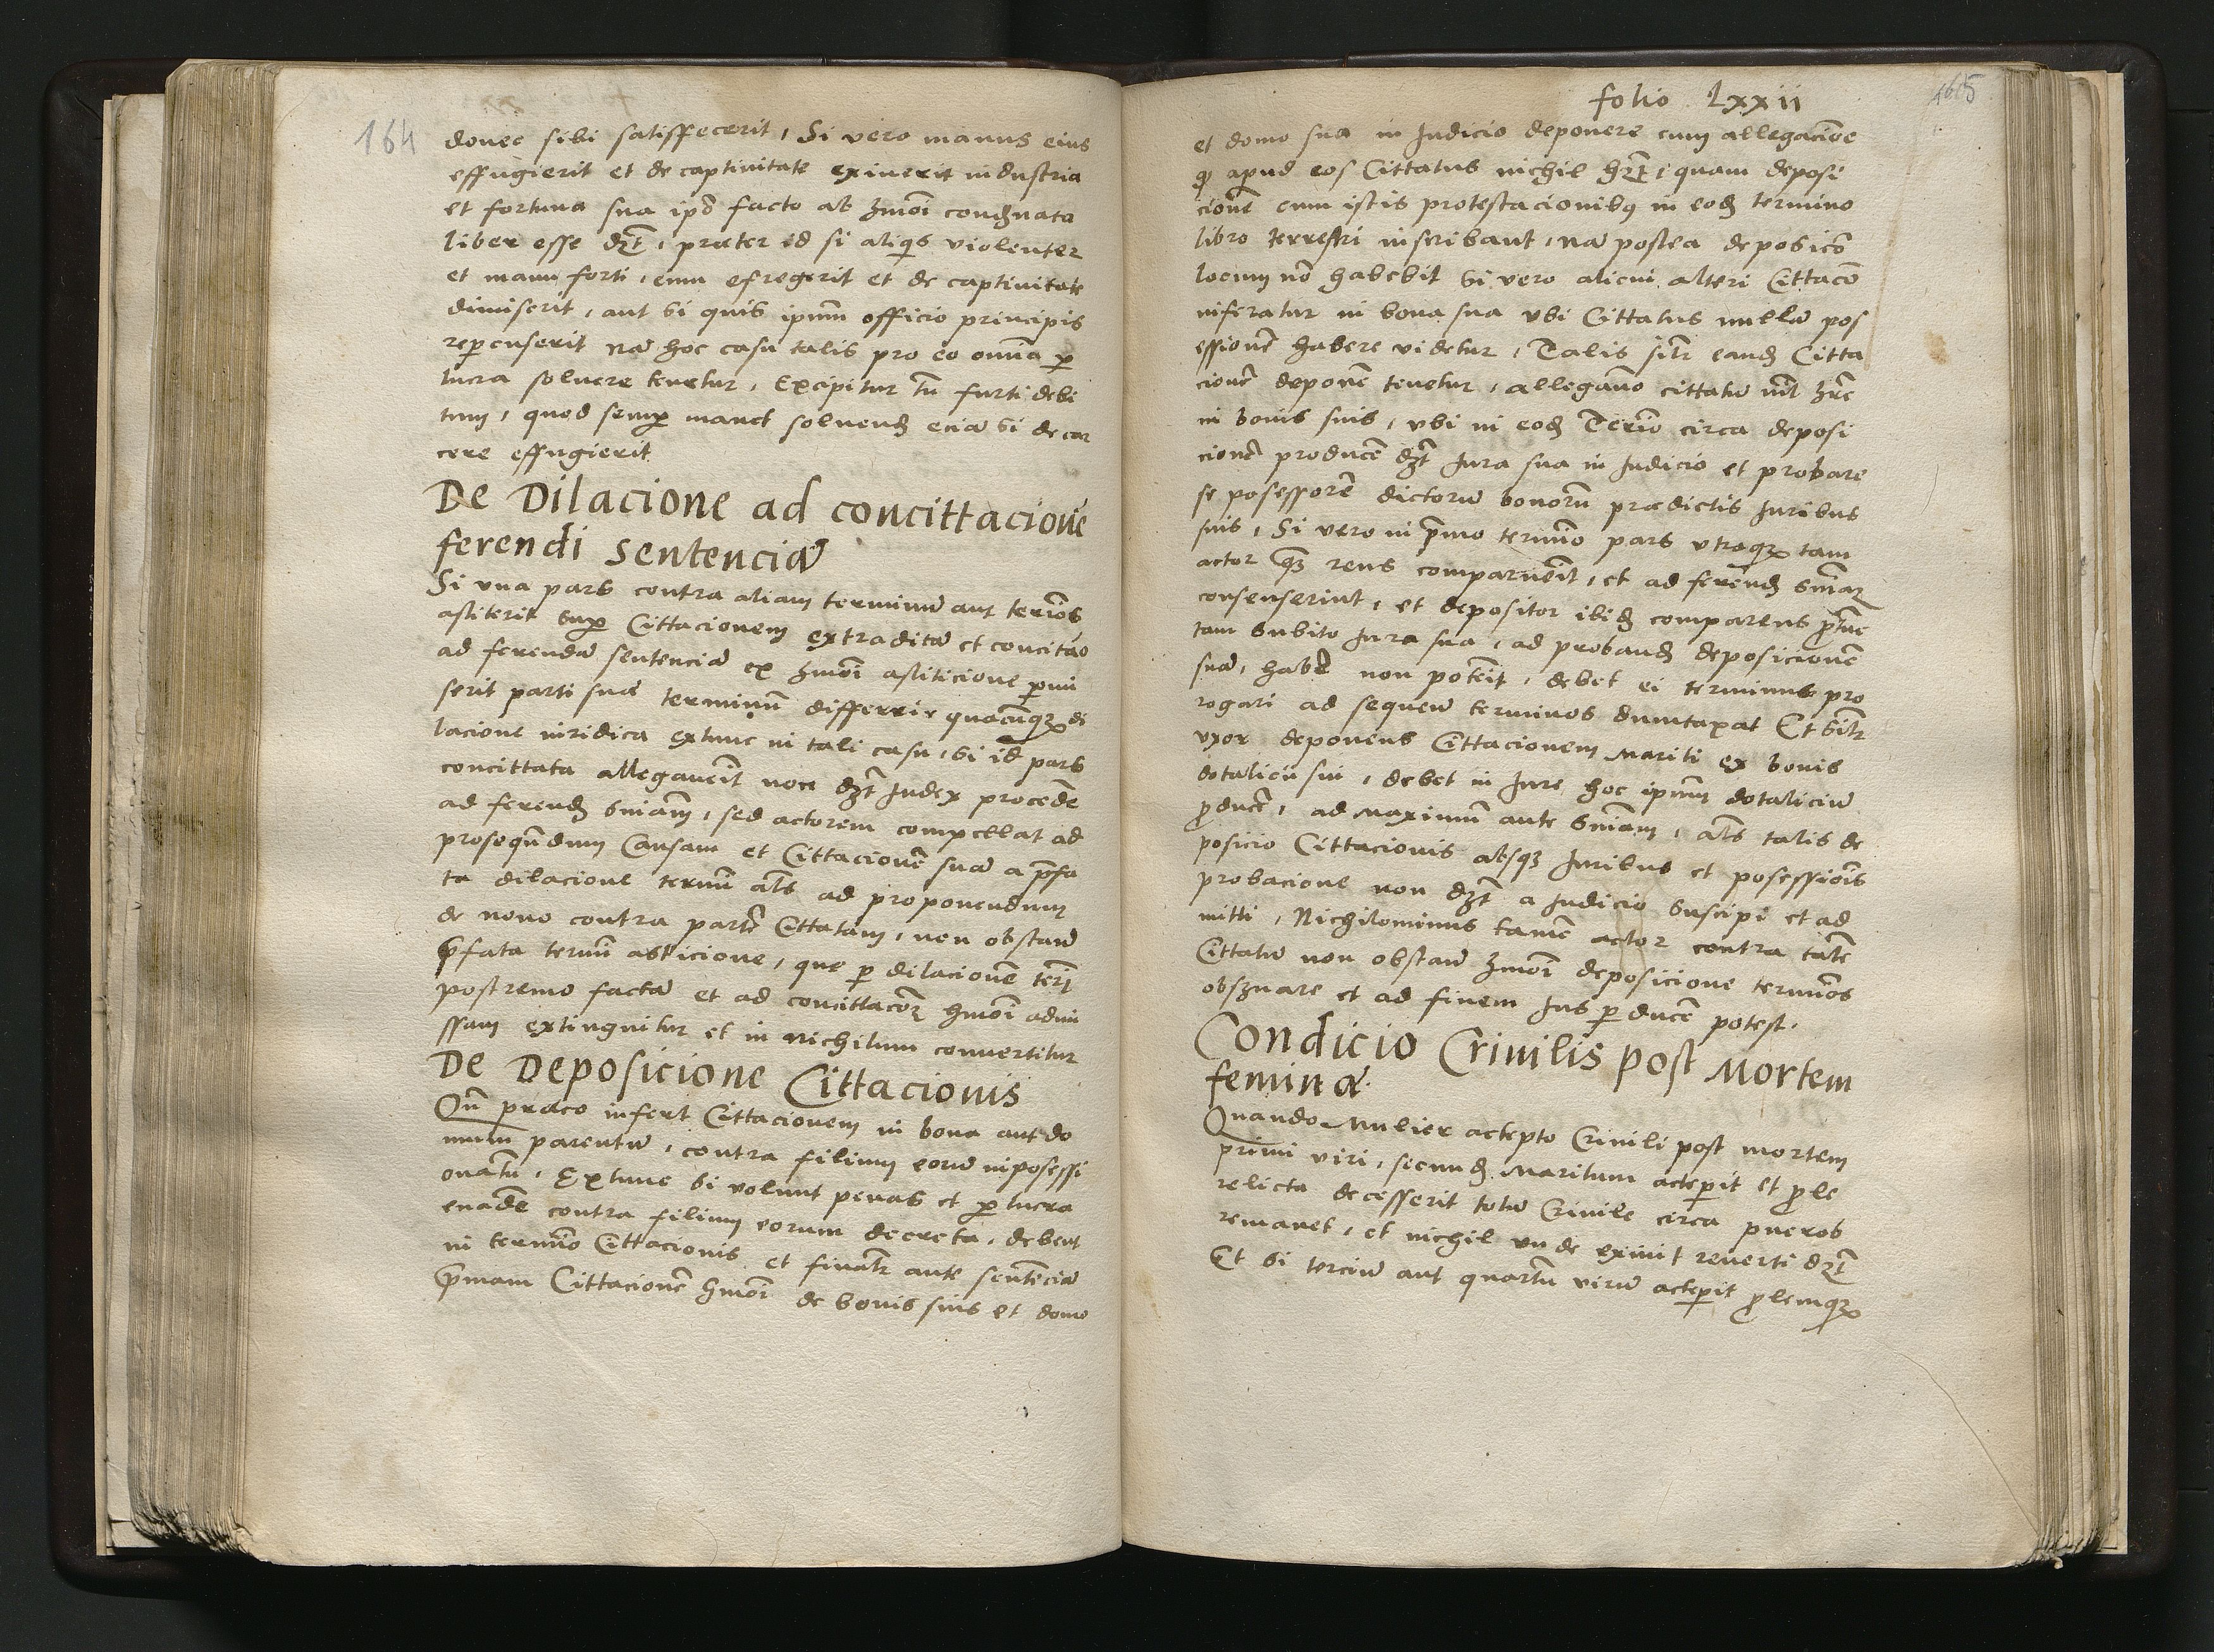 164
donec sibi satisffecerit, Si vero manus eius
effugierit et de captivitate exiverit industria
et fortuna sua ipō facto ab hmōi condēnata
liber esse dꝫt, præter id si aliqis violenter
et manu forti, eum efregerit et de captivitate
dimiserit, aut si quis ipnm officio principis
repercuserit nā hoc casu talis pro eo omnia ꝑ
lucra soluere tenetur, Excipitur tn̄ furti debi
tum, quod semꝑ manet soluendꝫ eciā si de car
cere effugierit
De Dilacione ad concittacionē
ferendi sentenciā
Si vna pars contra aliam terminū aut teriōs
astiterit suꝑ Cittacionem extraditā et concitāo
ad ferendā sentenciā ex hmōi astiticione ꝑmi
serit parti suæ terminū differri quacūqꝫ di
lacione iuridica extunc in tali casu, si id pars
concittata allegauerit non dꝫt Judex procedē
ad ferendꝫ sniam, sed actorem compellat ad
prosequēdum Causam et Cittacionē suā a p̄fa
ta dilacione termī als ad proponendum
de nouo contra partē Cittatam, non obstan̄
p̄fata termī asticione, que ꝑ dilacionē terī
postremo factā et ad concittacōꝫ hmōi admi
ssam extinguitur et in nichilum conuertitur
De Deposicione Cittacionis
Qn̄ præco infert Cittacionem in bona aut do
mum parentū, contra filium eorū inposessi
onatū, Extunc si volunt penas et ꝑ lucra
euadē contra filium eorum decreta, debent
in termīo Cittacionis et finatr ante sentēciā
p̄mam Cittacionē hmōi de bonis suis et domo
folio Lxxii
165
et domo sua in Judicio deponere cum allegacione
ꝙ apud eos Cittatus nichil hꝫt, quam deposi
cionē cum istis protestacionibꝰ in eodꝫ termino
libro terrestri inscribant, nā postea deposicō
locum nō habebit Si vero alicui alteri Cittacō
inferatur in bona sua vbi Cittatus nullā pos
essionē habere videtur, Talis sitr eandꝫ Citta
cionē deponē tenetur, allegando cittatū nil hrē
in bonis suis, vbi in eodꝫ Teriō circa deposi
cionē producē dꝫt Jura sua in Judicio et probare
se posessorē dictorū bonorū prædictis Juribus
suis, Si vero in p̄mo termīo pars vtraqꝫ tam
actor qꝫ reus comparuerit, et ad ferendꝫ sniaꝫ
consenserint, et depositor ibidꝫ comparens ꝓtunc
tam subito Jura sua, ad probandꝫ deposicionē
suā, habē non poterit, debet ei terminus pro
rogari ad sequen̄ terminos dumtaxat Et sitr
vxor deponens Cittacionem Mariti ex bonis
dotalicii sui, debet in Jure hoc ipnm dotaliciū
ꝓducē, ad maximū ante sniam, als talis de
posicio Cittacionis absqꝫ Juribus et posessiōis
probacione non dꝫt a Judicio suscipi et ad
mitti, Nichilominus tamē actor contra talē
Cittatū non obstan̄ hmōi deposicione termīos
obseruare et ad finem Jus ꝑducē potest.
Condicio Crinilis post Mortem
feminæ
Quando Mulier accepto Crinili post mortem
primi viri, secundꝫ Maritum acceperit et ꝓle
relicta decesserit totū Crinile circa pueros
remanet, et nichil vnde exiuit reuerti dꝫt
Et si terciū aut quartū virū acceperit ꝓlemqꝫ